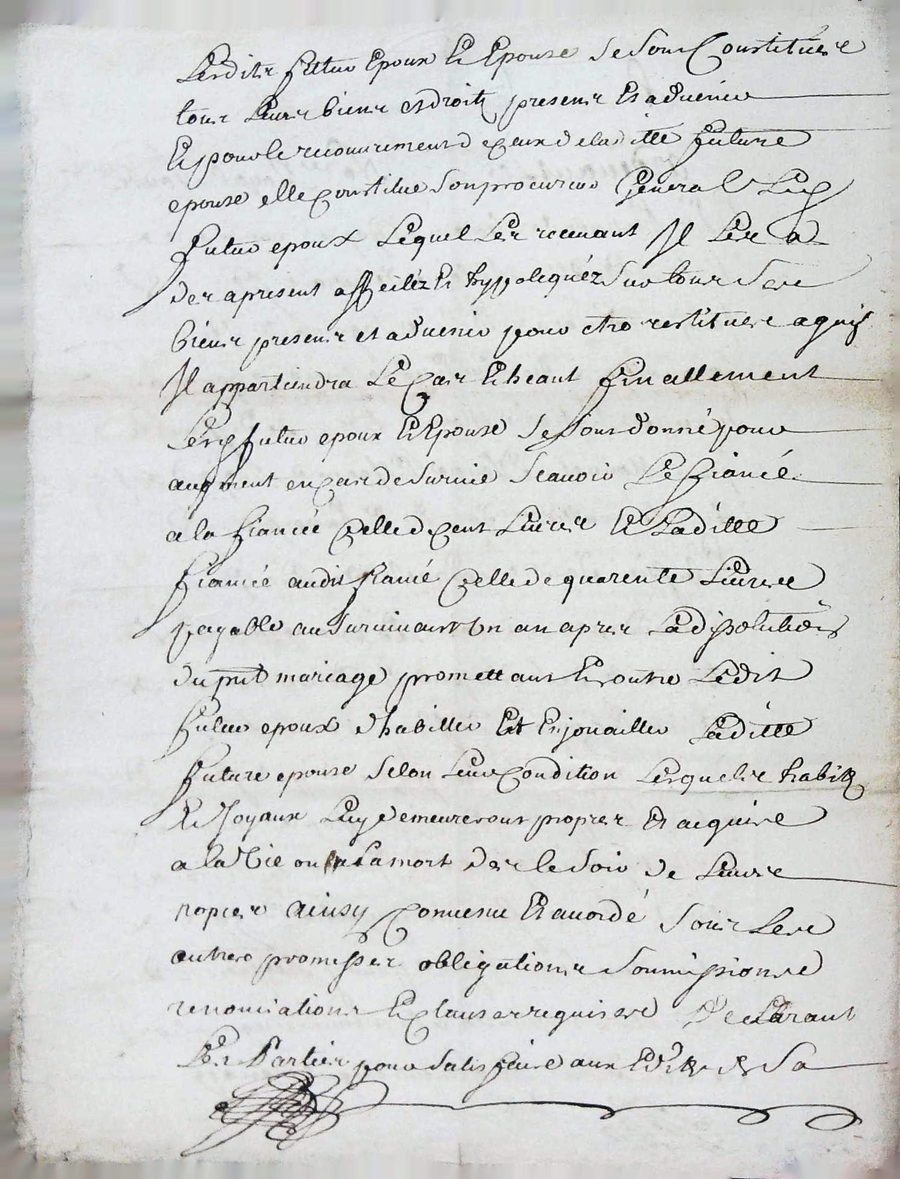 Lesdits futur Epoux Et Epouse se sont Constitués
tous Leurs biens et droits presens Et advenir
Et pour le recouvrement d'eceux de la ditte future
epouse elle constitue son procureur General Led
futur epoux Lequel Les recevant Il Les a
des apresent affectéz Et hyppotequéz sur tous ses
biens presens et advenir pour etre restitués a qui
Il appartiendra Le cas Echeant finallement
Lesd futur epoux Et Epouse se sont donné pour
augment en cas de survie scavoir Le fiancé
a la fiancée celle de cent Livres Et Laditte
fiancée audit fiancé celle de quarente Livres
payable au survivant Un an apres La dissolution
du pnt mariage promettant En outre Ledit
futur epoux d'habiller Et Enjoailler Laditte
future epouse selon Leur Condition Lesquels habits
Et Joyaux Luy demeureront propres Et acquis
a la Vie ou a La mort des le soir de Leurs
nopces Ainsy Convenu Et accordé sous Les
autres promesses obligations soumissions
renonciations Et clauses requises Declarant
Les Parties pour satisfaire aux Edits de Sa